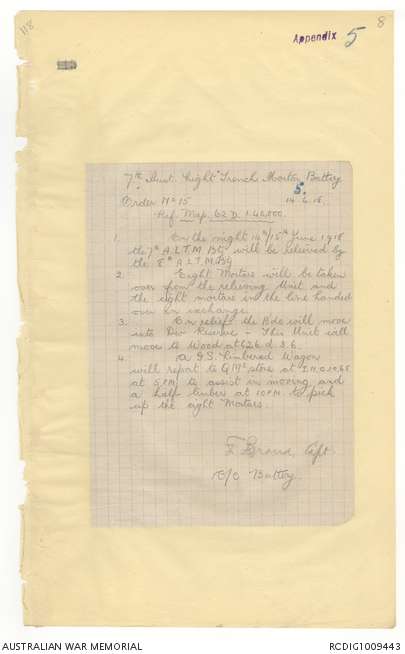 118
8
Appendix 5
7th Aust. Light Trench Mortar Battery
5.
Order No 15
14.6.18.
Ref. Map. 62 D. 1:40,000.
1. On the night 14th/15th June 1918
the 7th A.L.T.M. Bty will be relieved by
the 8th A.L.T.M. Bty
2. Eight Mortars will be taken
over from the relieving Unit and
the eight mortars in the line handed
over in exchange.
3. On relief the Bde will move
into Div Reserve - This Unit will
move to Wood at
4. a G.S. Limbered Wagon
will report to Q Mr store at
at 5 P.M. to assist in moving and
a half limber at 10 P.M. to pick
up the eight Mortars.
Capt.
O/C Battery.
AUSTRALIAN WAR MEMORIAL
RCDIG1009443